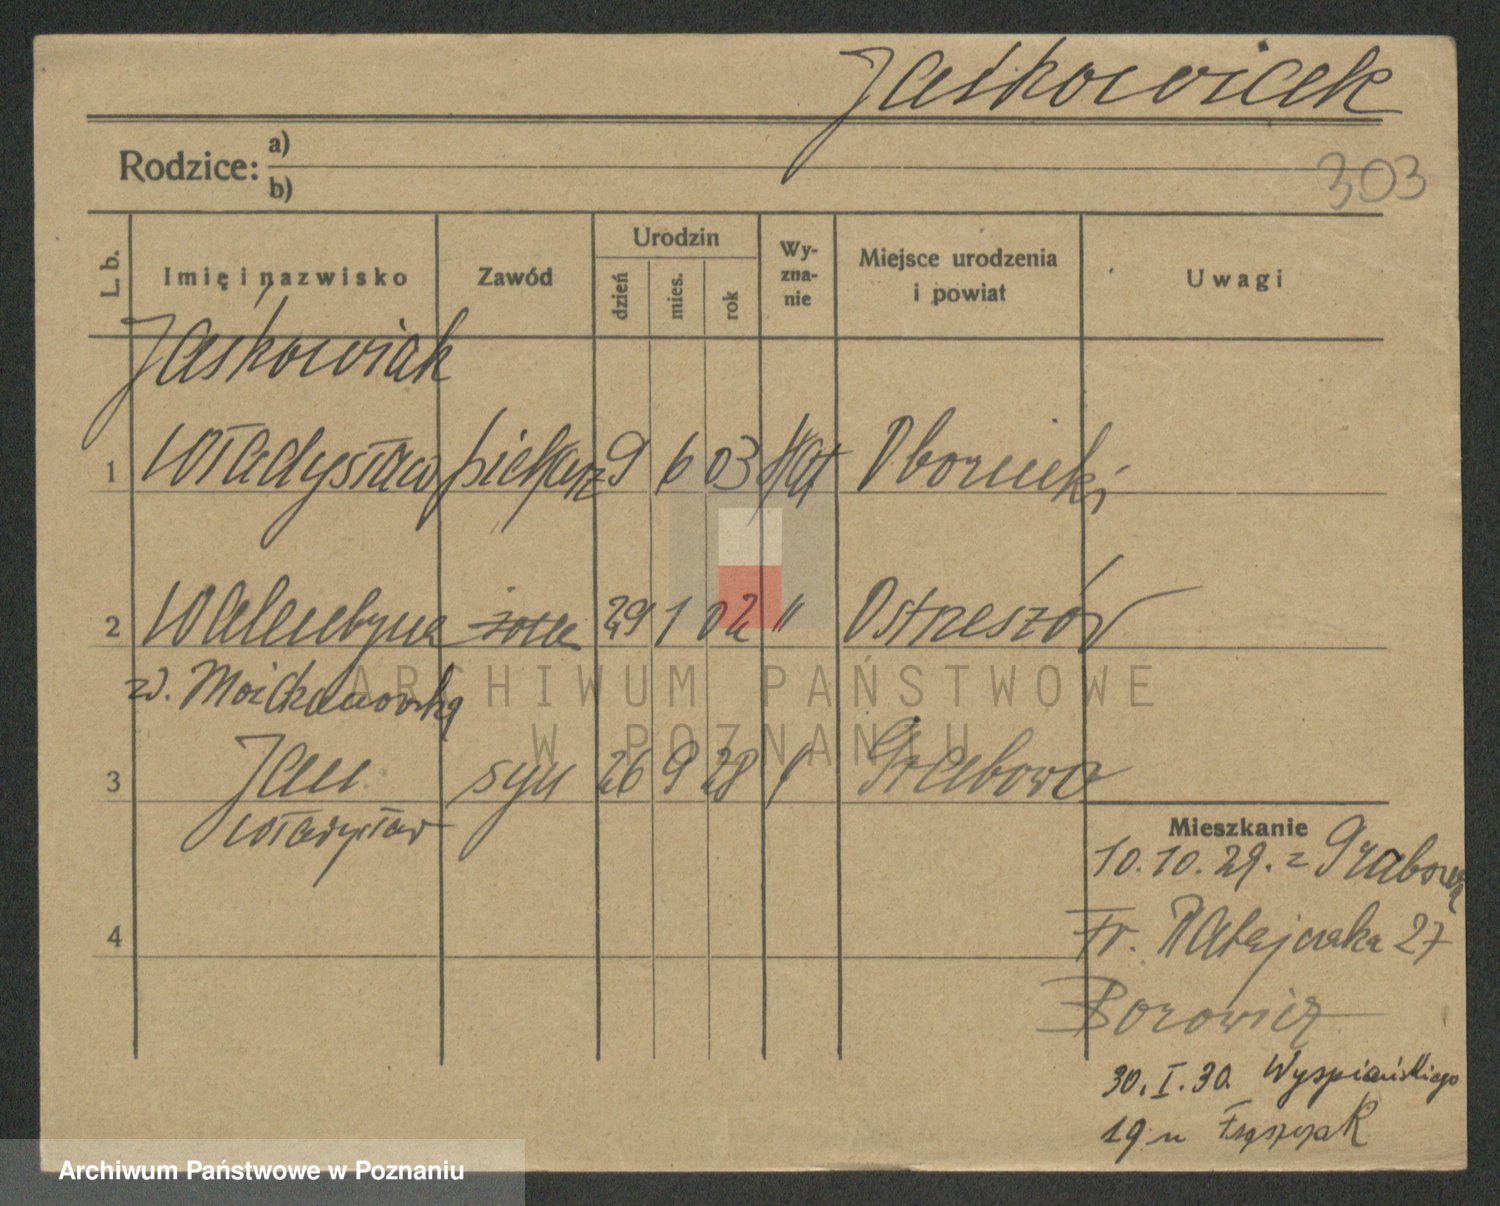 Jaśkowiak
Rodzice: a)
b)
303
L. b. Imię i nazwisko Zawód Urodzin dzień mies. rok Wy-zna-nie Miejsce urodzenia i powiat Uwagi
Jaśkowiak
1 Władysław piekarz 9 6 03 kat Oborniki
2 Walentyna żona 29 1 02 " Ostrzeszów
3 Jan syn 26 9 28 " Grabowo
Władysław
4
Mieszkanie
10.10.29. z Grabowa
Fr. Ratajczaka 27
Borowicz
30.I.30. Wyspiańskiego
19 u
ARCHIWUM PAŃSTWOWE
W POZNANIU
Archiwum Państwowe w Poznaniu